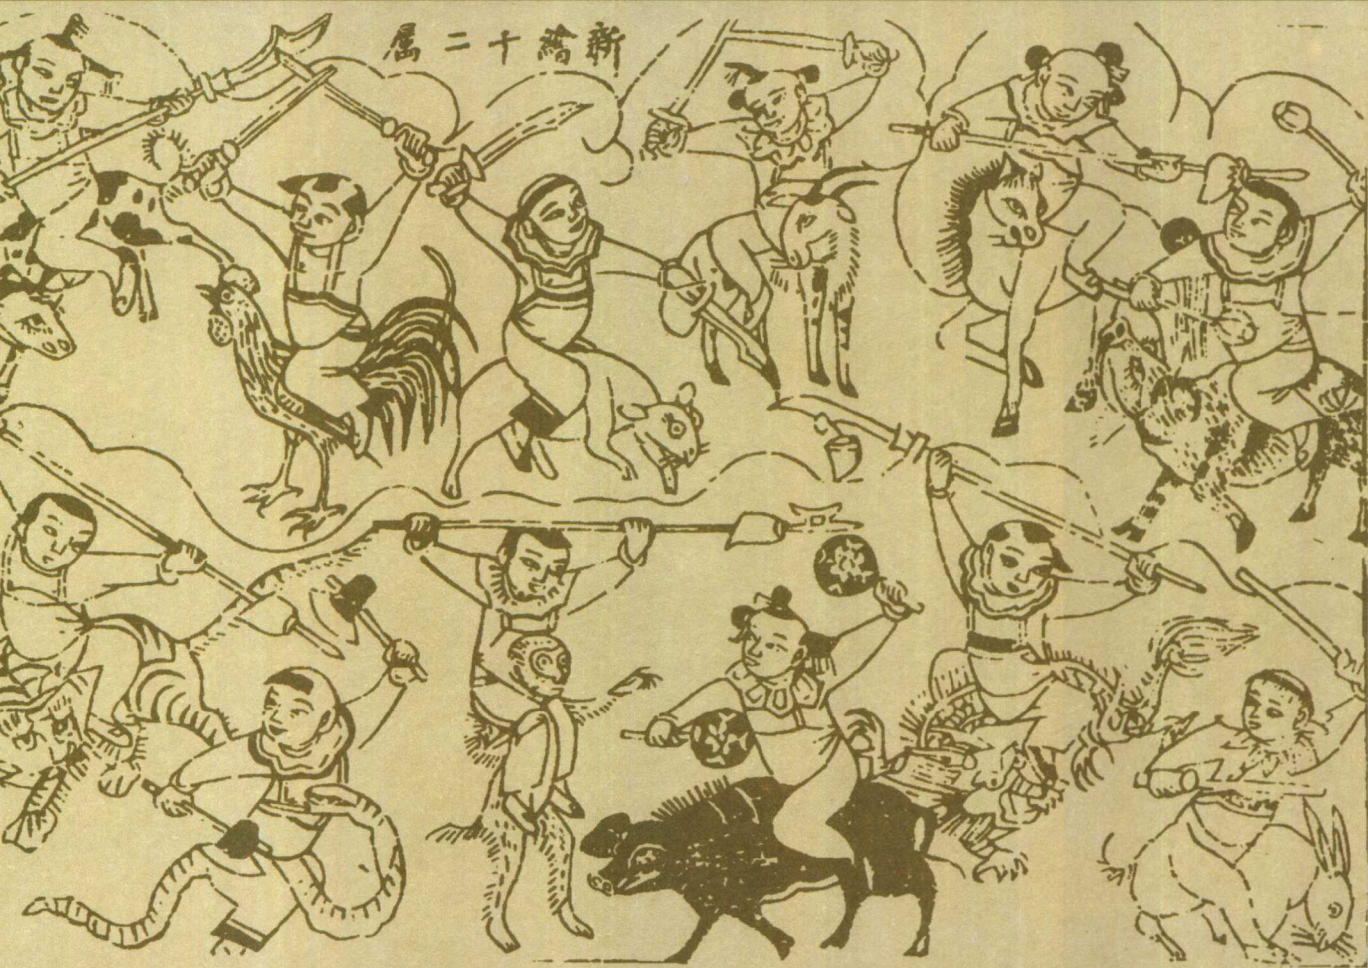 新 十二属